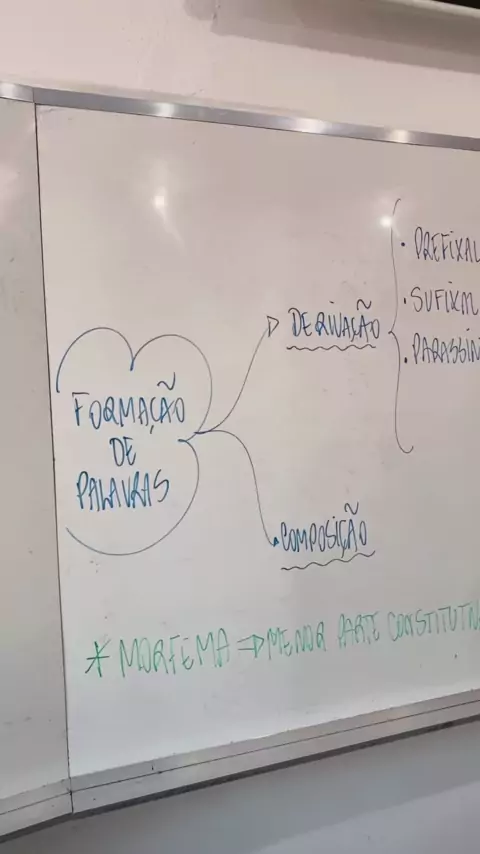 FORMAÇÃO
DE
PALAVRAS
DERIVAÇÃO
• PREFIXAL
• SUFIXAL
• PARASSIN
COMPOSIÇÃO
* MORFEMA ⇒ MENOR PARTE CONSTITUTIV